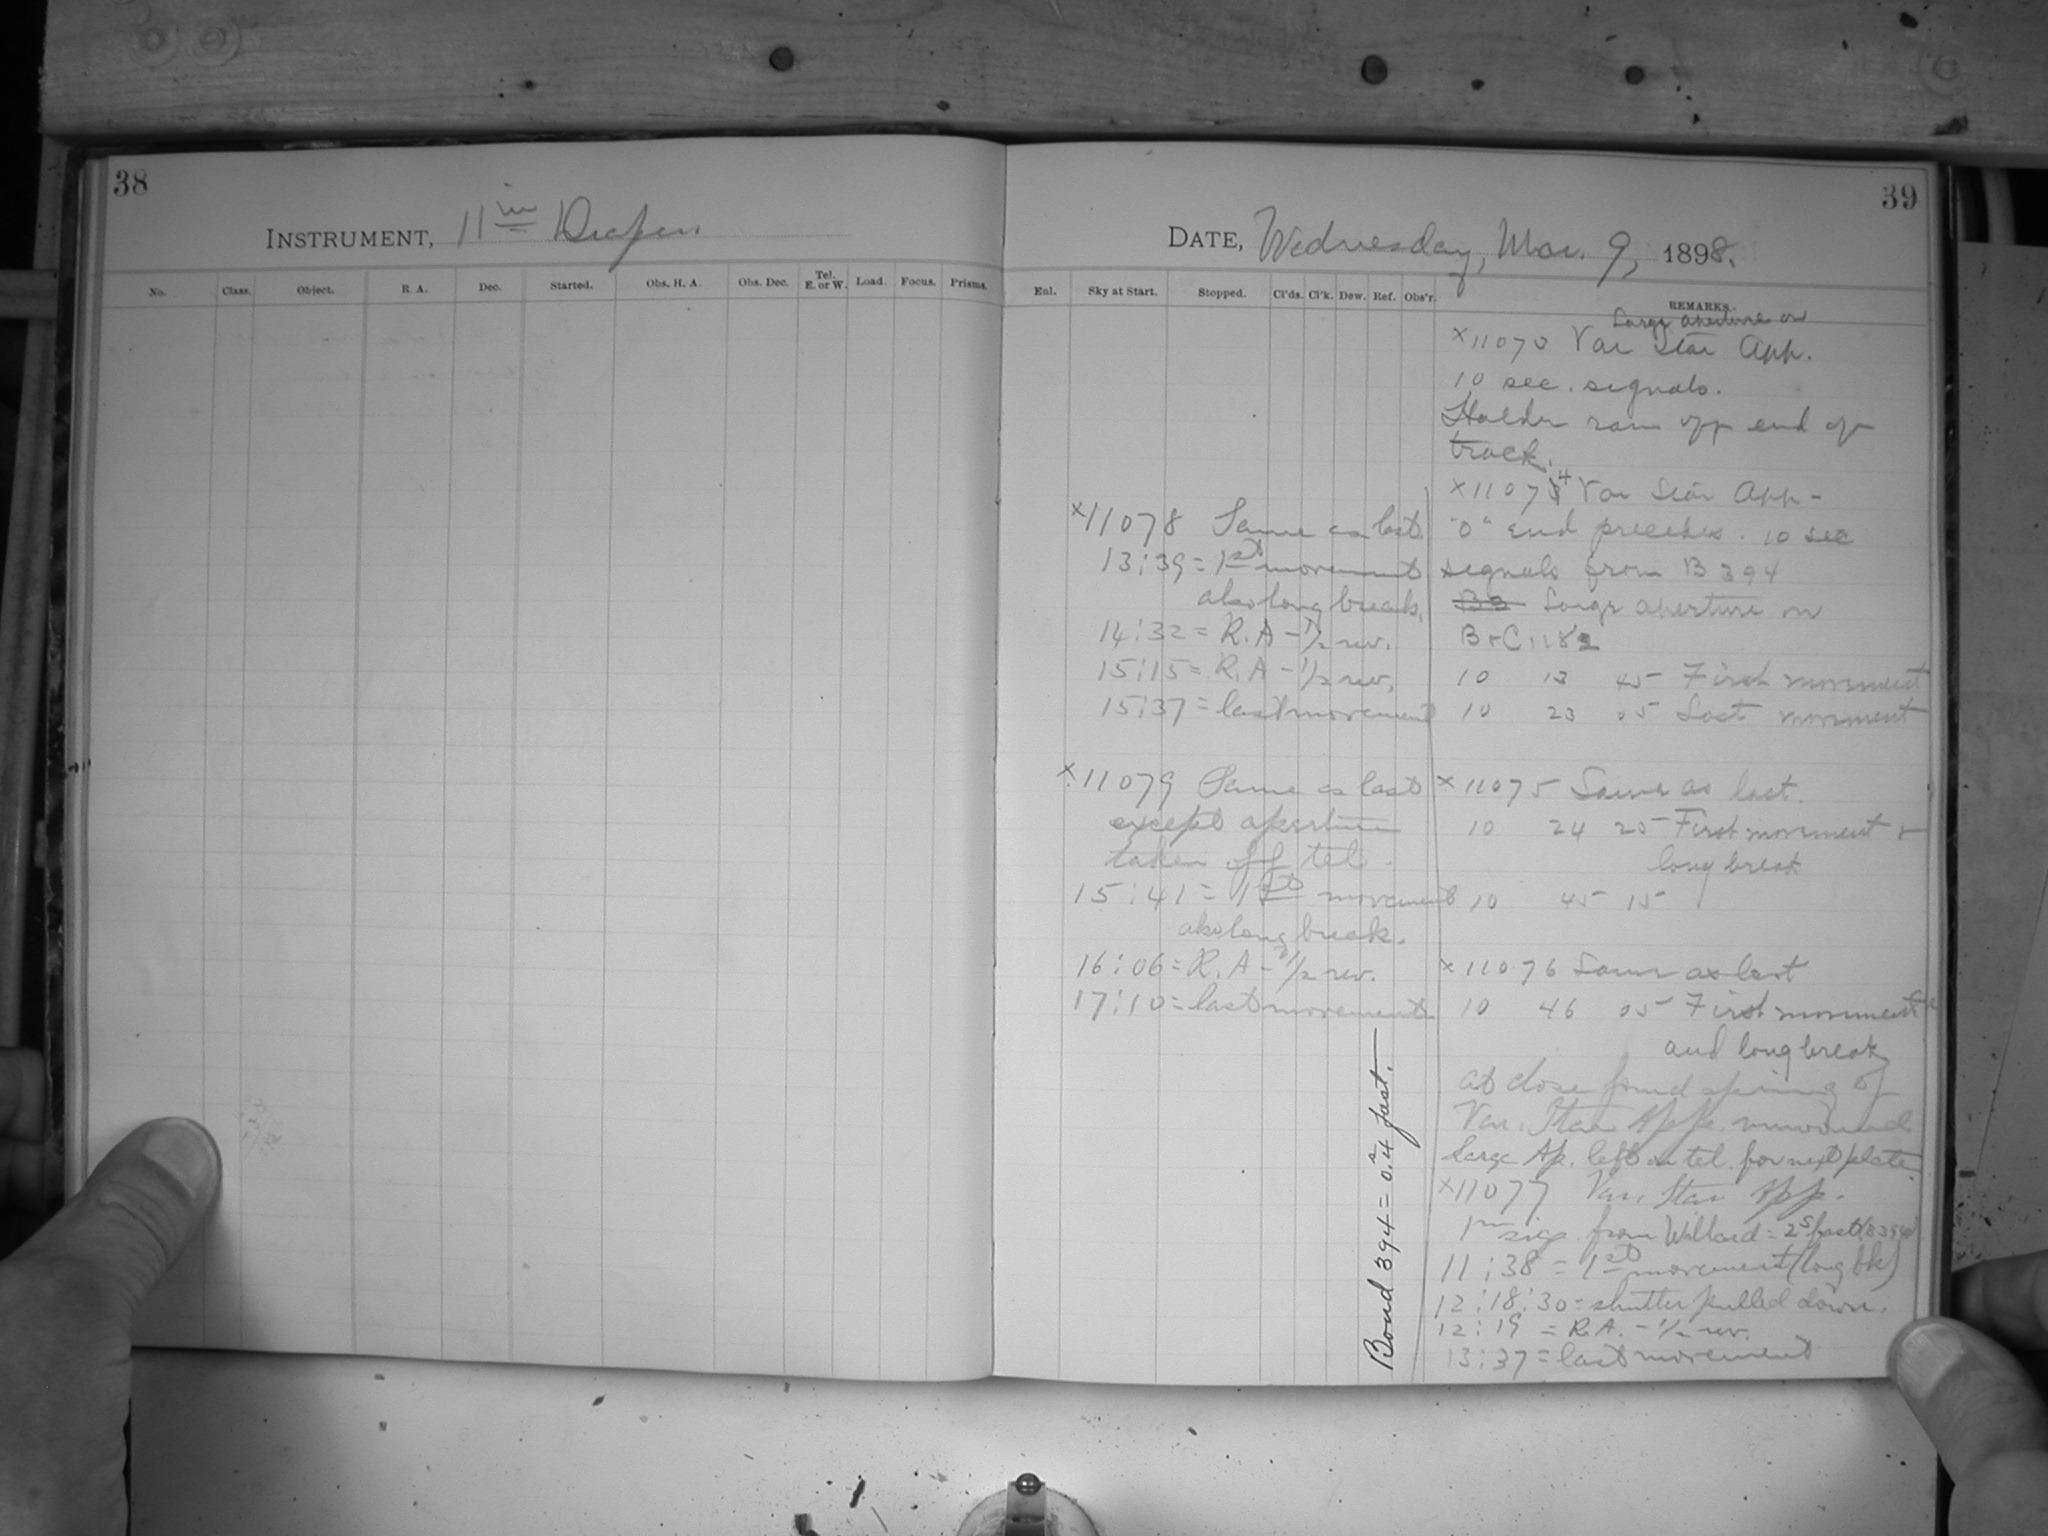 38
INSTRUMENT, 11 in Draper.
No. Class. Object. R. A. Dec. Started. Obs. H. A. Obs. Dec. Tel. E. or W. Load. Focus. Prisms.
39
DATE, Wednesday, Mar. 9, 1898.
Enl. Sky at Start. Stopped. Cl'ds. Cl'k. Dew. Ref. Obs'r. REMARKS.
x11078 Same as last.
13:39 = 1st movement
also long break.
14:32 = R.A - 1/2 rev.
15:15 = R.A - 1/2 rev.
15:37 = last movement
x11079 Same as last
except aperture
taken off tel.
15:41 = 1st movement
also long break.
16:06 = R.A - 1/2 rev.
17:10 = last movement
Bond 394 = 0.s4 fast.
Large aperture on
x11070 Var Star App.
10 sec. signals.
Holder ran off end of
track.
x11074 Var Star App -
"O" end precedes. 10 sec
signals from B 394
Large aperture on
B + C. 182
10 13 45 First movement
10 23 05 Last movement
x11075 Same as last.
10 24 25 First movement +
long break
10 45 15
x11076 Same as last
10 46 05 First movement
and long break
at close found spring of
Var. Star App. unwound
Large Ap. left on tel. for next plate
x11077 Var. Star App.
1m sig. from Willard = 2s fast (B394)
11:38 = 1st movement (long bk)
12:18:30 = shutter pulled down.
12:19 = R.A. - 1/2 rev.
13:37 = last movement